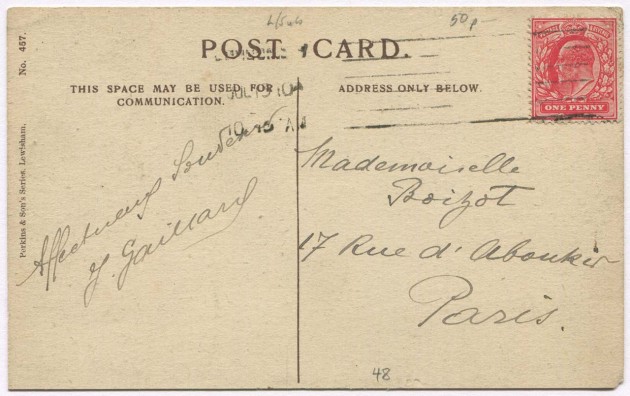 L/Sub
50p-
POST CARD.
LEWISHAM
THIS SPACE MAY BE USED FOR
COMMUNICATION.
ADDRESS ONLY BELOW.
JUL 19 10
10 15 AM
ONE PENNY
No. 457.
Perkins & Son's Series. Lewisham.
Affectueux Souvenirs
Y. Gaillard
Mademoiselle
Boizot
17 Rue d'Aboukir
Paris.
48